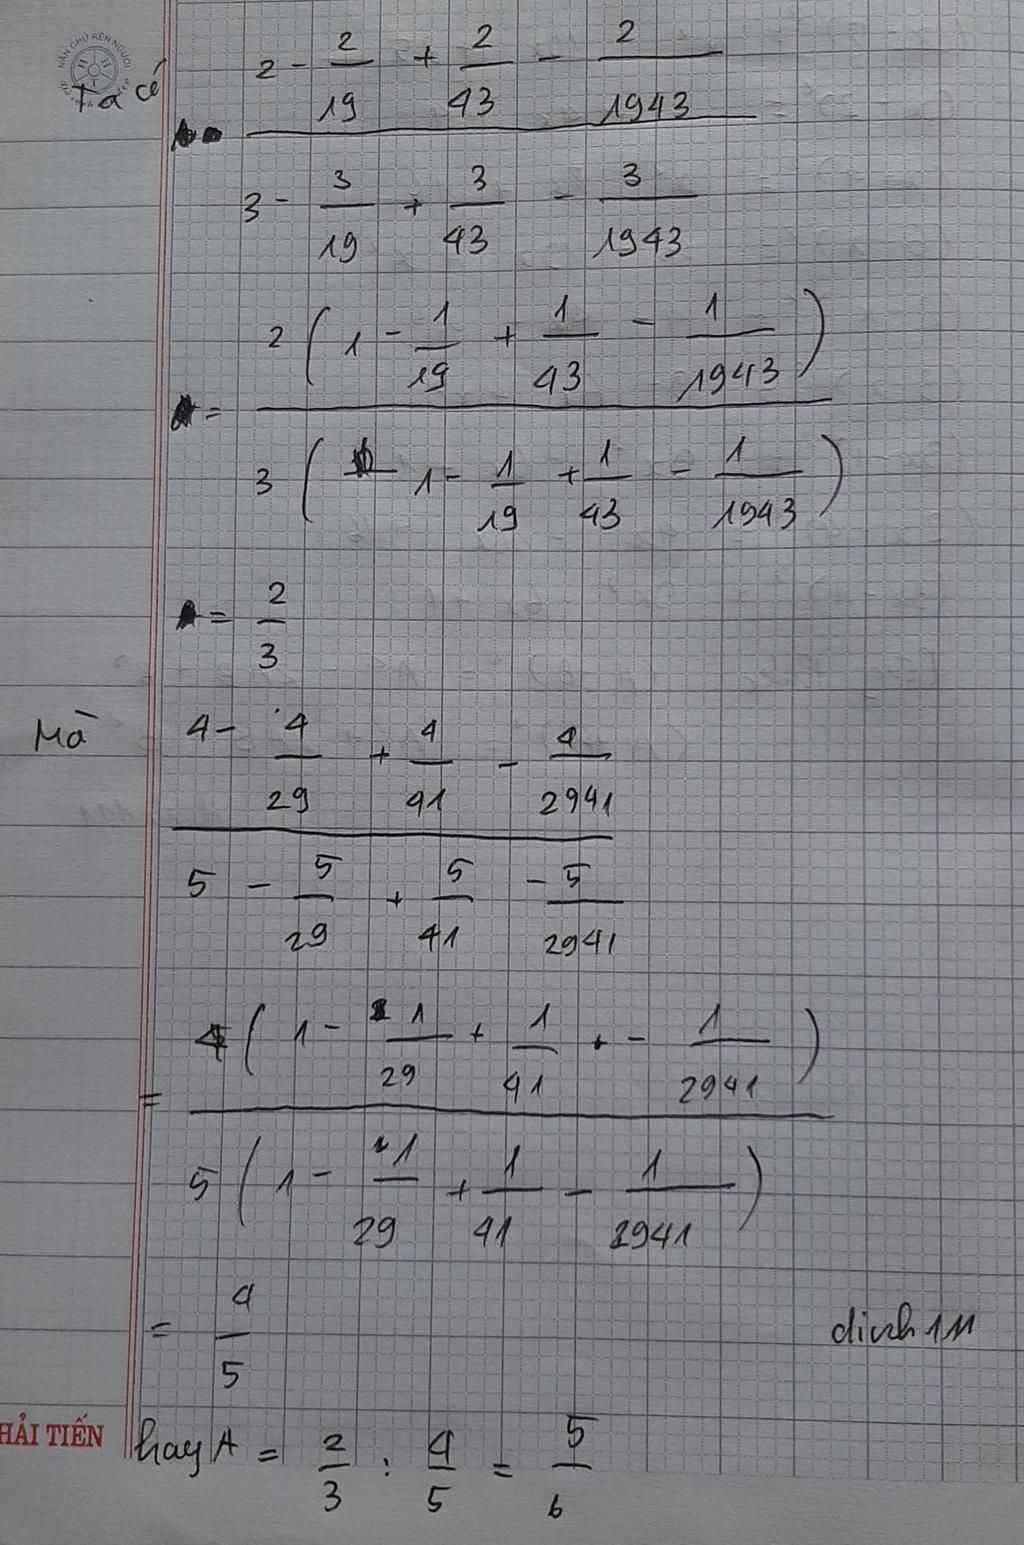 Ta có
2 - 2/19 + 2/43 - 2/1943
3 - 3/19 + 3/43 - 3/1943
= 2 ( 1 - 1/19 + 1/43 - 1/1943 )
3 ( 1 - 1/19 + 1/43 - 1/1943 )
= 2/3
Mà
4 - 4/29 + 4/41 - 4/2941
5 - 5/29 + 5/41 - 5/2941
= 4 ( 1 - 1/29 + 1/41 - 1/2941 )
5 ( 1 - 1/29 + 1/41 - 1/2941 )
= 4/5
dinh1M
HẢI TIẾN
hay A = 2/3 : 4/5 = 5/6